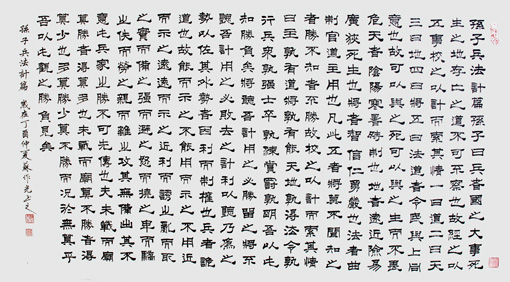 孫子兵法計篇孫子曰兵者國之大事死
生之地存亡之道不可不察也故經之以
五事校之以計而索其情一曰道二曰天
三曰地四曰將五曰法道者令民與上同
意也故可以與之死可以與之生而不畏
危天者陰陽寒暑時制也地者遠近險易
廣狹死生也將者智信仁勇嚴也法者曲
制官道主用也凡此五者將莫不聞知之
者勝不知者不勝故校之以計而索其情
曰主孰有道將孰有能天地孰得法令孰
行兵眾孰強士卒孰練賞罰孰明吾以此
知勝負矣將聽吾計用之必勝留之將不
聽吾計用之必敗去之計利以聽乃為之
勢以佐其外勢者因利而制權也兵者詭
道也故能而示之不能用而示之不用近
而示之遠遠而示之近利而誘之亂而取
之實而備之強而避之怒而撓之卑而驕
之佚而勞之親而離之攻其無備出其不
意此兵家之勝不可先傳也夫未戰而廟
算勝者得算多也未戰而廟算不勝者得
算少也多算勝少算不勝而況於無算乎
吾以此觀之勝負見矣
孫子兵法計篇 歲在丁酉仲夏蘇作光